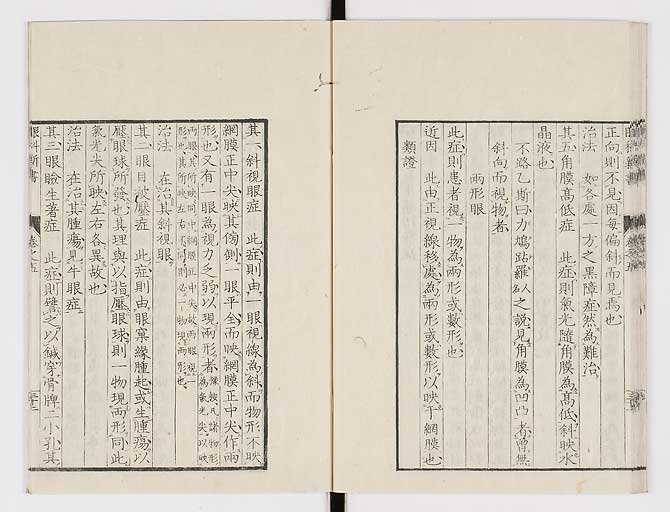 正向則不見因每偏斜而見焉也
治法　如各處一方之黑障症然為難治
其五角膜高低症　此症則氣光隨角膜為高低斜映水
晶液也
不路乙斯曰力鳩跕羅以之說見角膜為凹凸者曾無
斜向而視物者
兩形眼
此症則患者視一物為兩形或數形也
近因　此由正視線移處為兩形或數形以映于網膜也
類證
其一斜視眼症　此症則由一眼視線為斜而物形不映
網膜正中尖映其傍側一眼平全而映網膜正中尖作兩
形也又有一眼為視力之弱以現兩形者
治法　在治其斜視眼
其二眼目被壓症　此症則由眼窠緣腫起或生腫瘍以
壓眼球所發也其理與以指壓眼球則一物現兩形同此
氣光尖所映左右各異故也
治法　在治其腫瘍見牛眼症
其三眼瞼生著症　此症則譬之以鍼穿骨牌二小孔其
眼科新書
卷之五